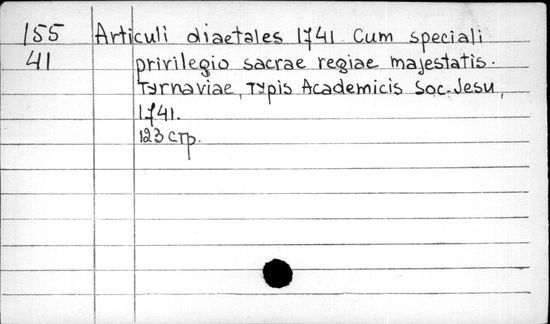 155 Articuli diaetales 1741 Cum speciali
41 privilegio sacrae regiae majestatis.
Tyrnaviae, Typis Academicis Soc. Jesu,
1741.
123 стр.